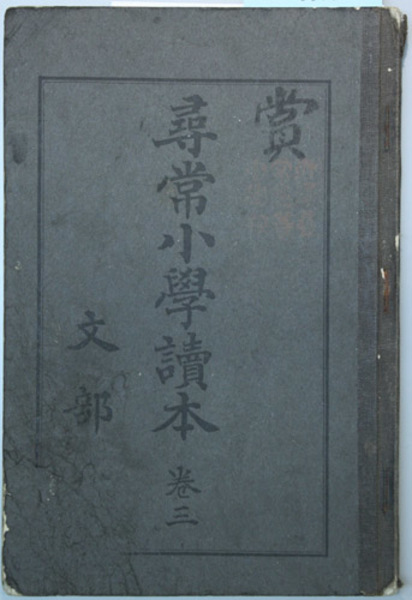 賞
尋常小學讀本 卷三
文部